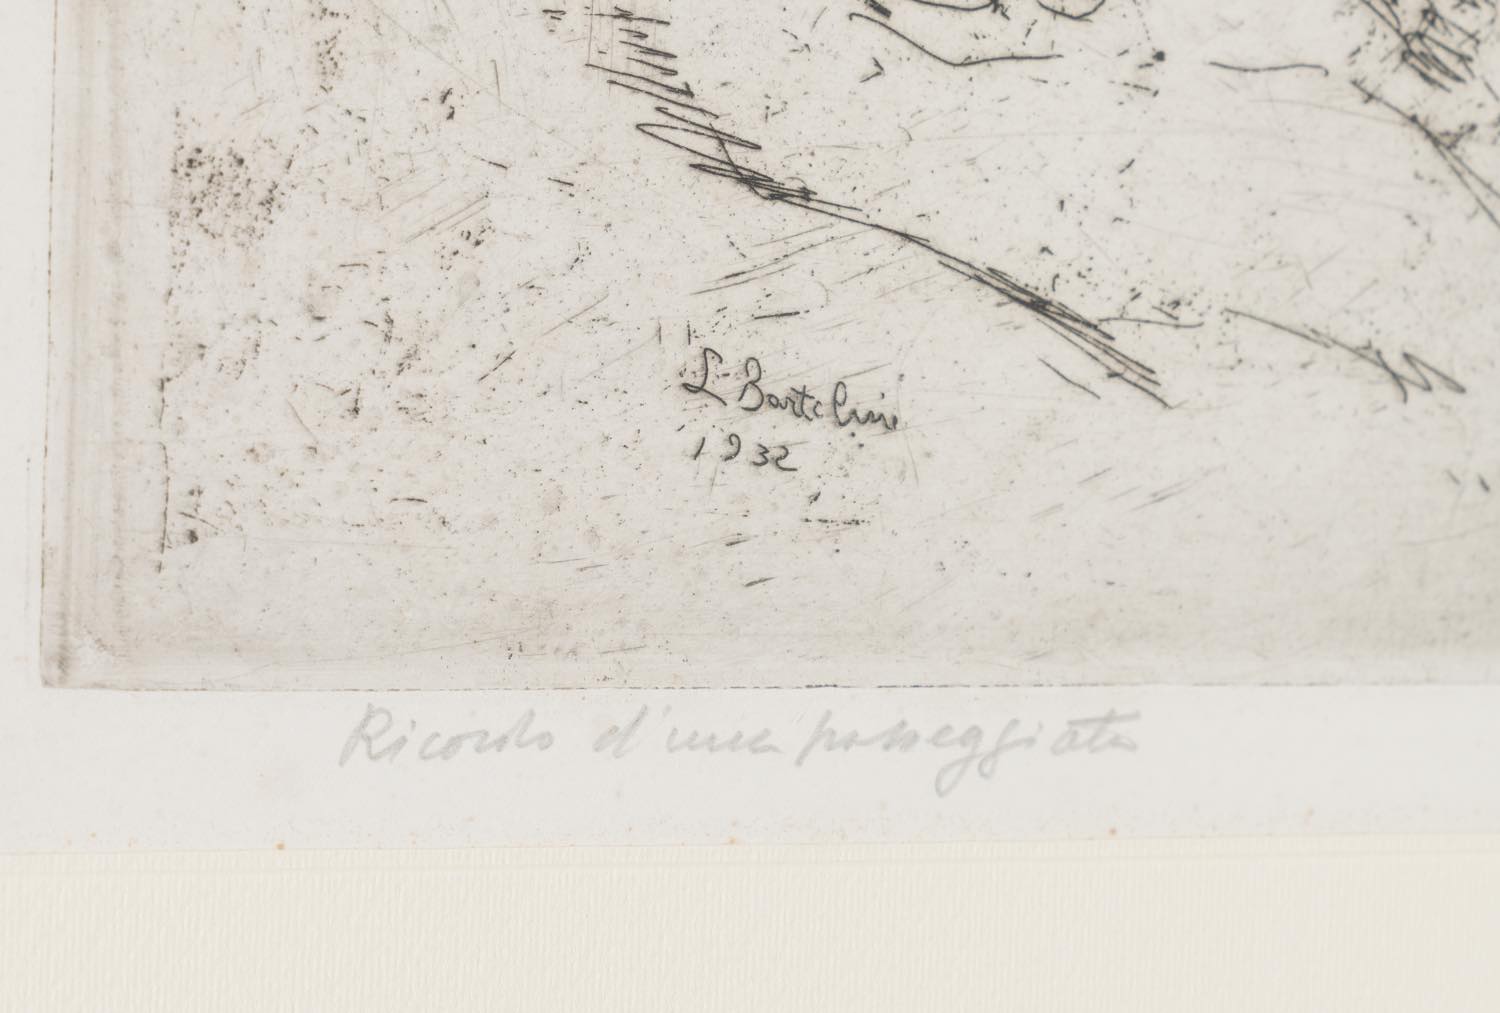 L Bartolini
1932
Ricordo d'una passeggiata